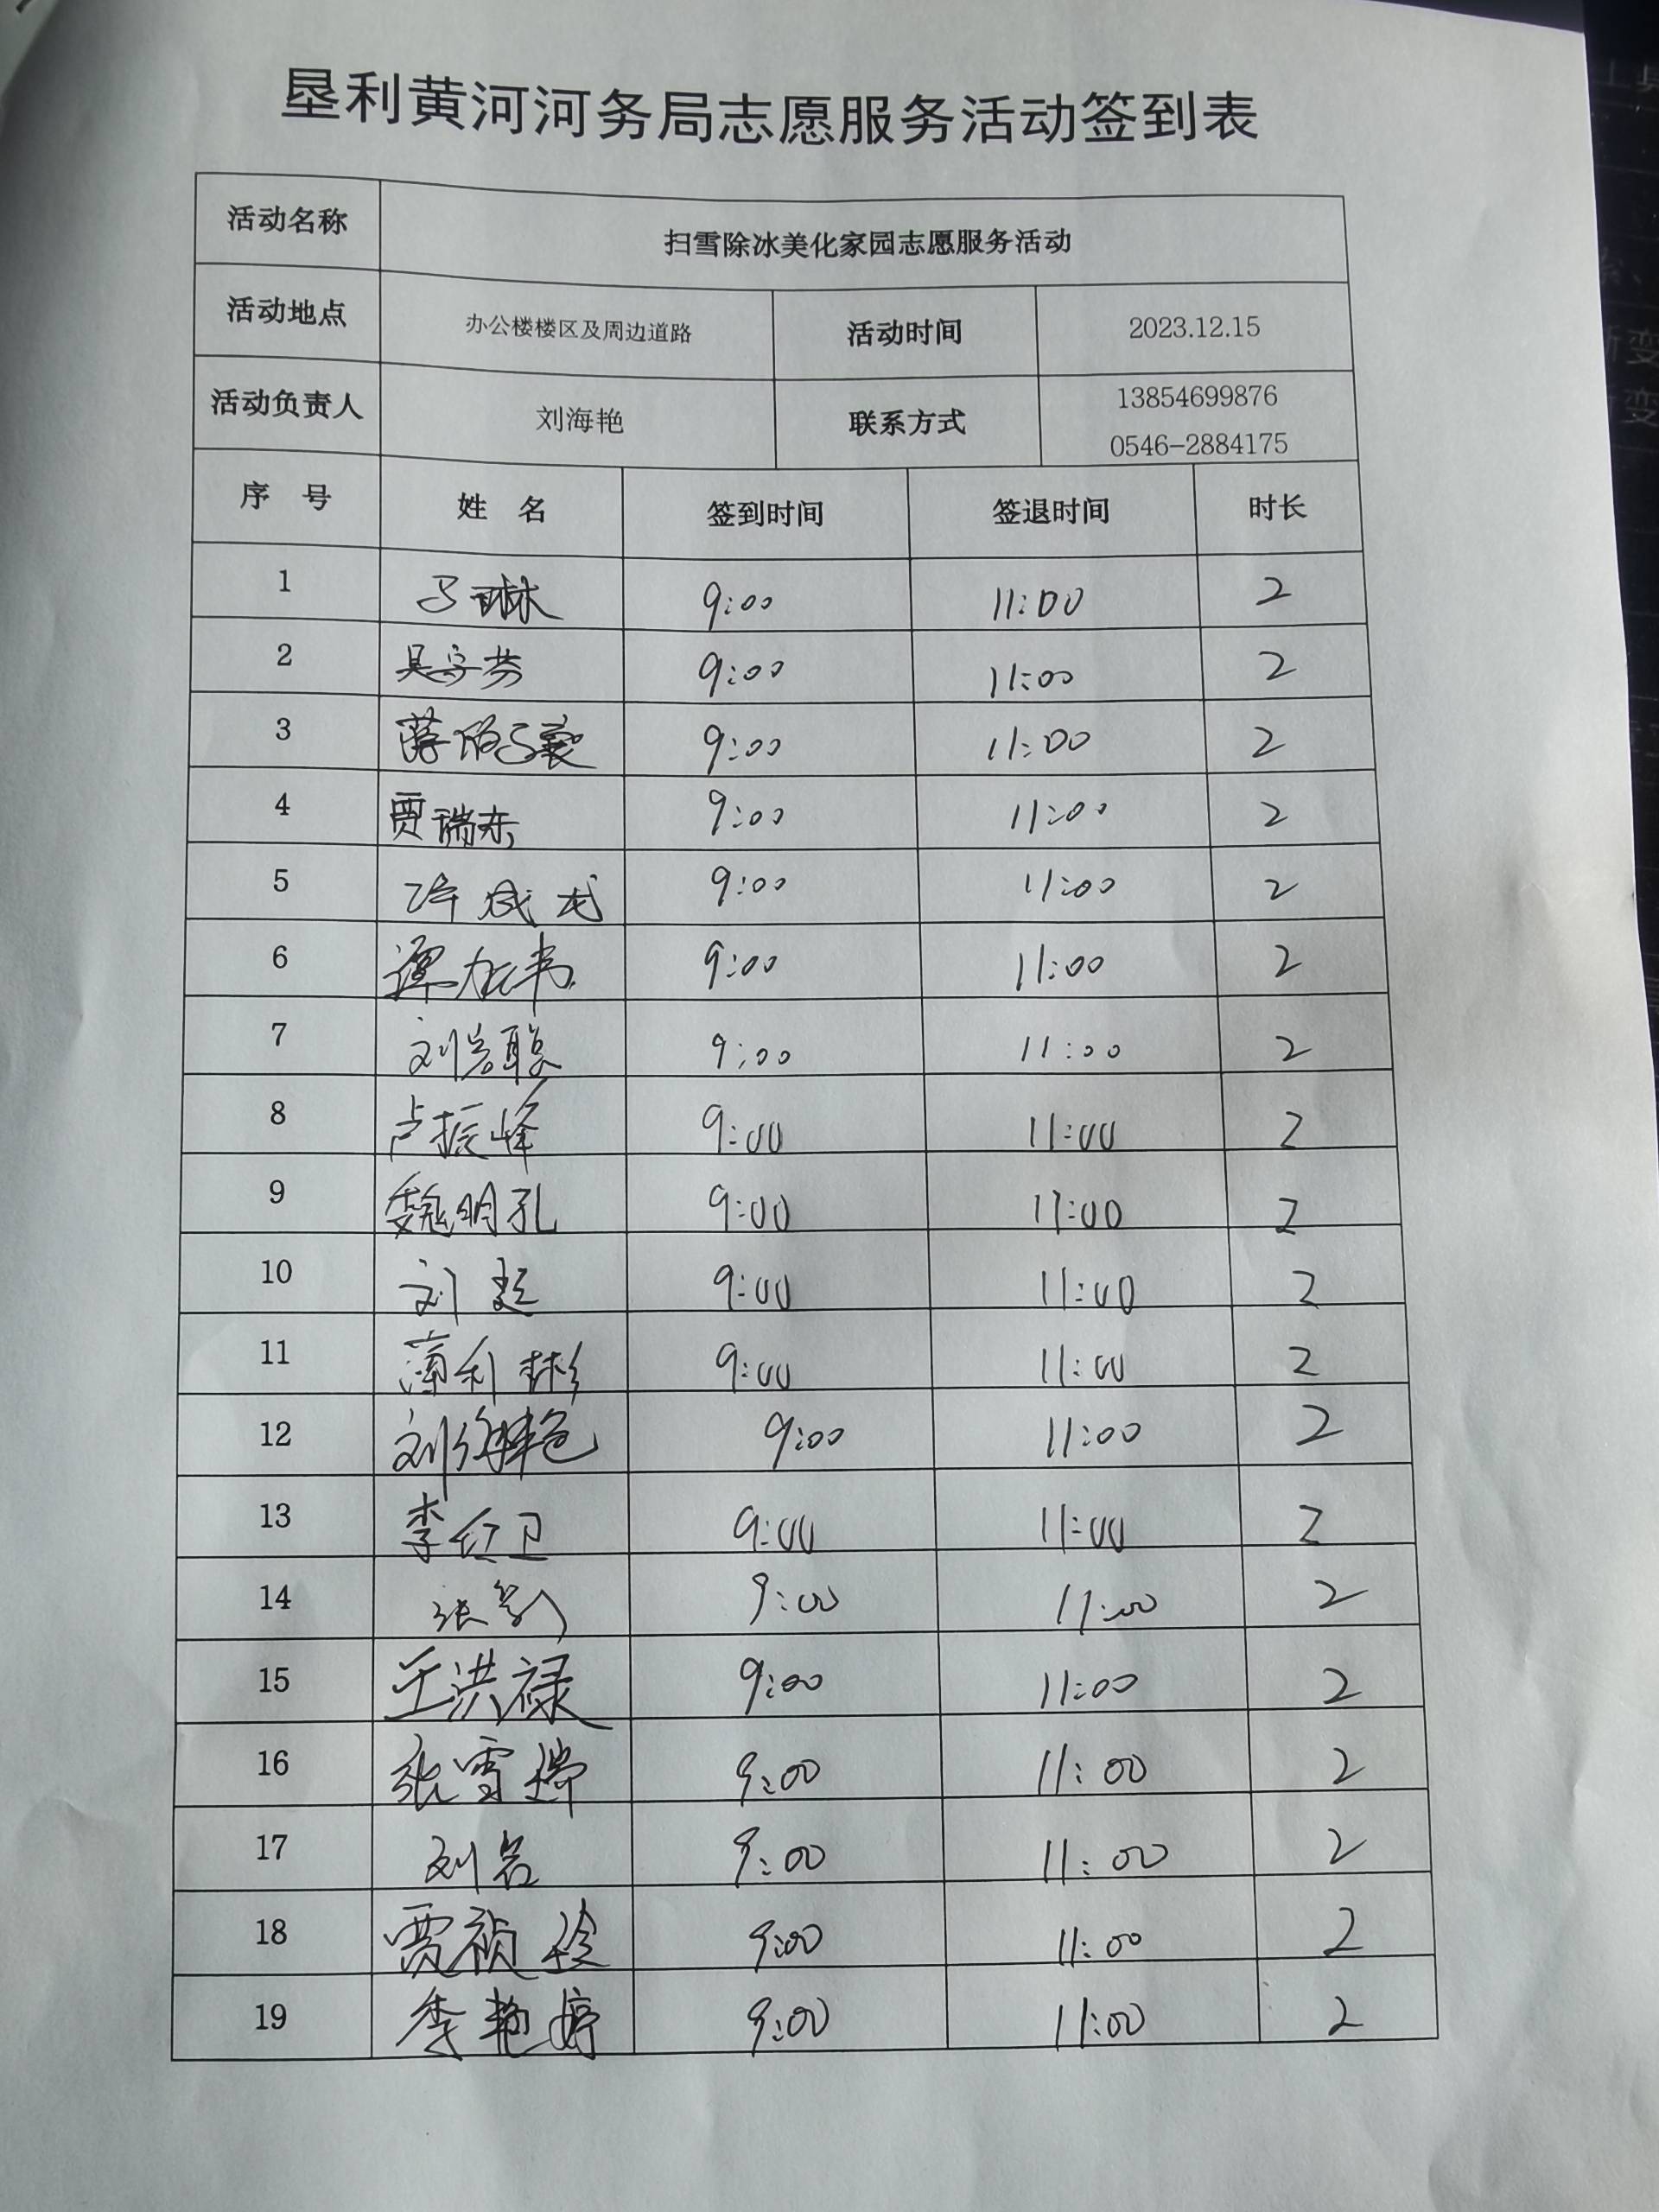 垦利黄河河务局志愿服务活动签到表
活动名称 扫雪除冰美化家园志愿服务活动
活动地点 办公楼楼区及周边道路 活动时间 2023.12.15
活动负责人 刘海艳 联系方式 13854699876
0546-2884175
序 号 姓 名 签到时间 签退时间 时长
1 9:00 11:00 2
2 9:00 11:00 2
3 9:00 11:00 2
4 贾瑞东 9:00 11:00 2
5 许成龙 9:00 11:00 2
6 9:00 11:00 2
7 刘岩聪 9:00 11:00 2
8 卢振峰 9:00 11:00 2
9 魏明孔 9:00 11:00 2
10 刘 9:00 11:00 2
11 薄利彬 9:00 11:00 2
12 刘海艳 9:00 11:00 2
13 李红卫 9:00 11:00 2
14 张 9:00 11:00 2
15 王洪禄 9:00 11:00 2
16 张雪瑞 9:00 11:00 2
17 刘岩 9:00 11:00 2
18 贾祯玲 9:00 11:00 2
19 李艳婷 9:00 11:00 2